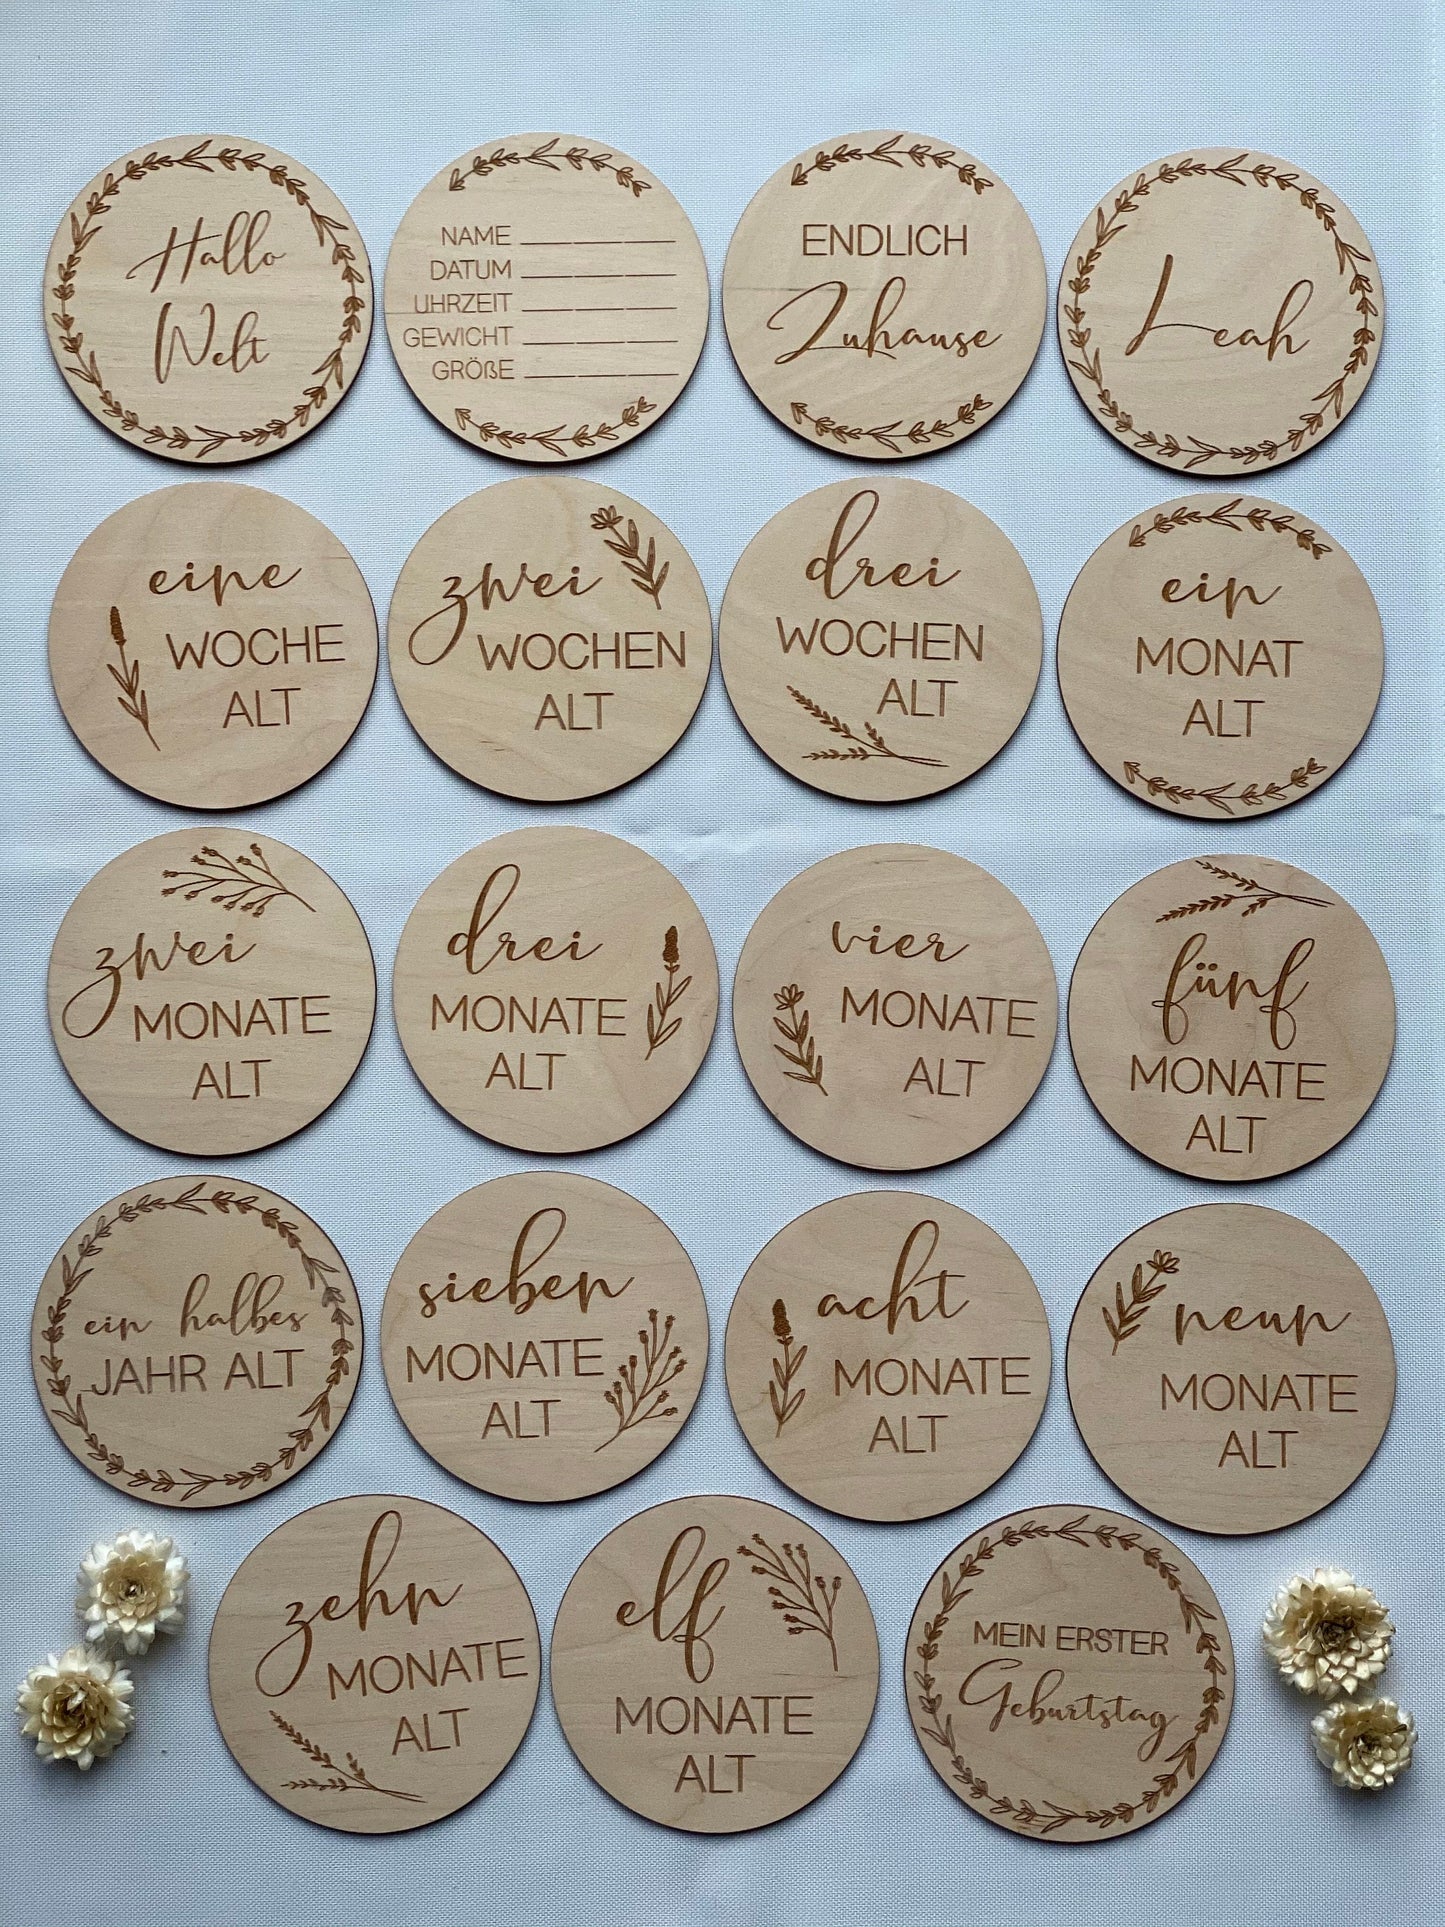 Hallo
Welt
NAME
DATUM
UHRZEIT
GEWICHT
GRÖßE
ENDLICH
Zuhause
Leah
eine
WOCHE
ALT
zwei
WOCHEN
ALT
drei
WOCHEN
ALT
ein
MONAT
ALT
zwei
MONATE
ALT
drei
MONATE
ALT
vier
MONATE
ALT
fünf
MONATE
ALT
ein halbes
JAHR ALT
sieben
MONATE
ALT
acht
MONATE
ALT
neun
MONATE
ALT
zehn
MONATE
ALT
elf
MONATE
ALT
MEIN ERSTER
Geburtstag